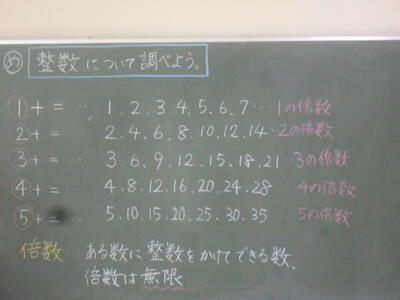 め 整数について調べよう。
1+= … 1.2.3.4.5.6.7…1の倍数
2+= … 2.4.6.8.10.12.14…2の倍数
3+= … 3.6.9.12.15.18.21…3の倍数
4+= … 4.8.12.16.20.24.28…4の倍数
5+= … 5.10.15.20.25.30.35…5の倍数
倍数…ある数に整数をかけてできる数。
倍数は無限